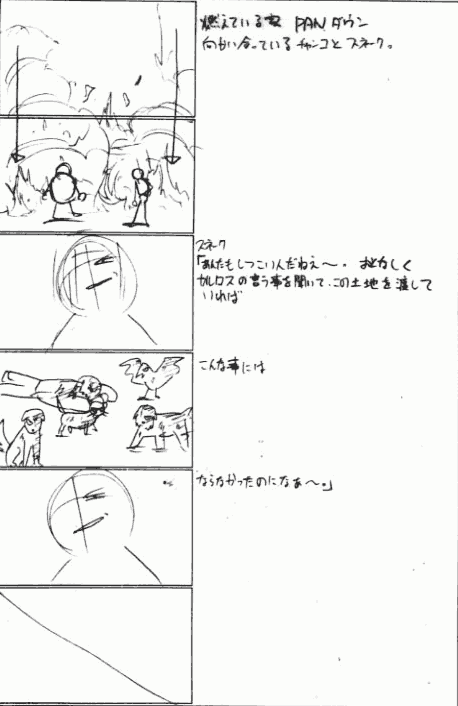 燃えている家 PANダウン
向かい合っているチャンコとスネーク。
スネーク
「あんたもしつこいんだねぇ〜。おとなしく
カルロスの言う事を聞いて、この土地を渡して
いれば
こんな事には
ならなかったのになぁ〜。」